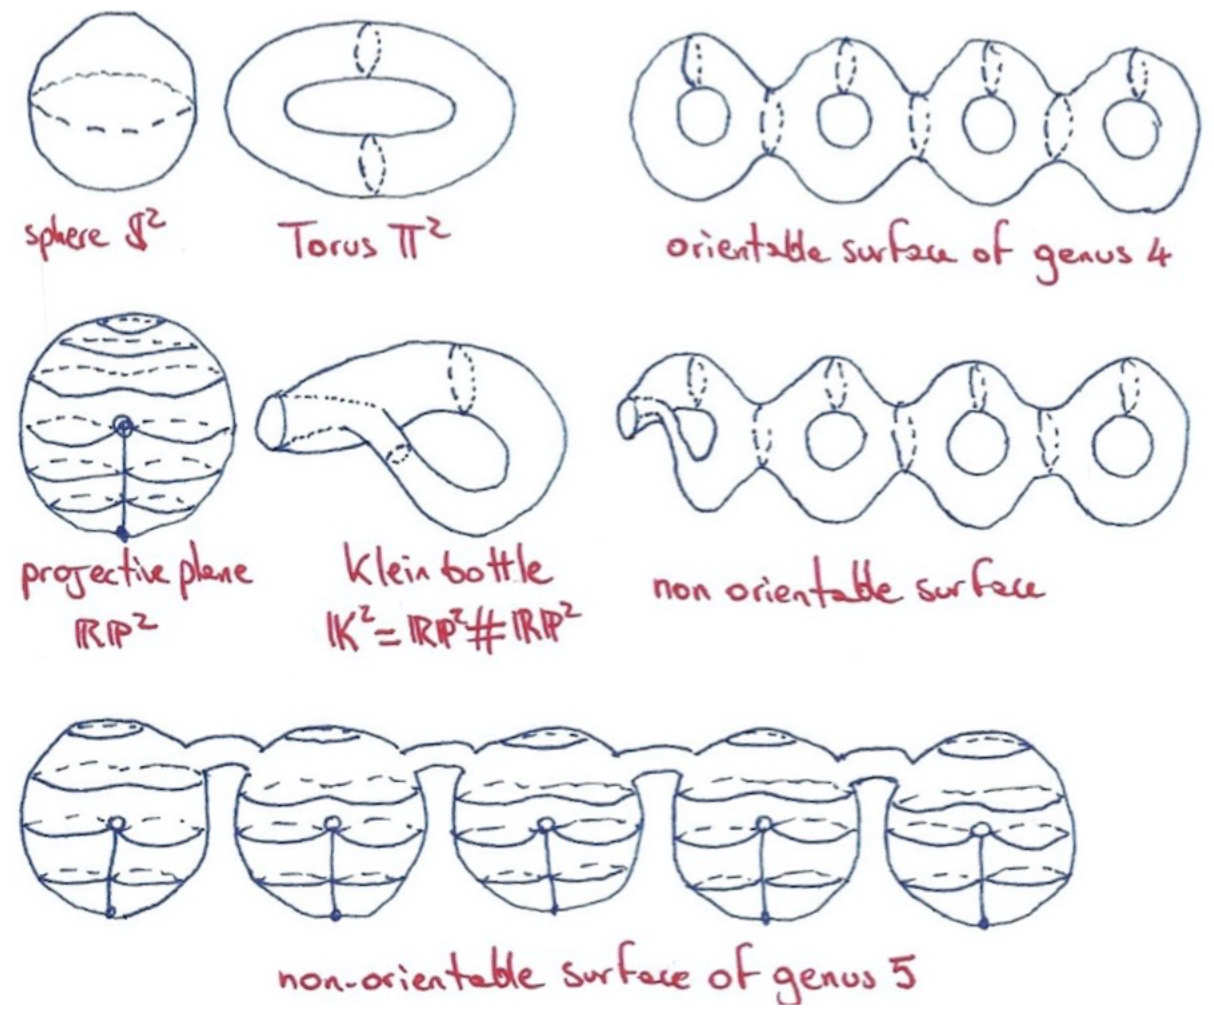 sphere 𝕊²
Torus 𝕋²
orientable surface of genus 4
projective plane
ℝℙ²
Klein bottle
𝕂² = ℝℙ² # ℝℙ²
non orientable surface
non-orientable surface of genus 5